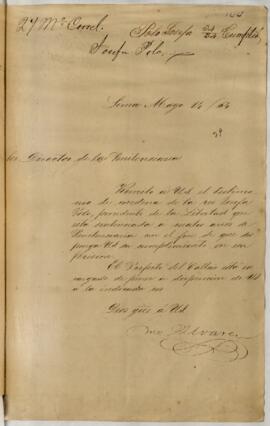 27 Mo Correl.
Polo Josefa Cumplió
Josefa Polo
Lima Mayo 14/64
Sor. Director de la Penitenciaria
Remito a Ud. el testimo
nio de condena de la rea Josefa
Polo, procedente de la Libertad que
está sentenciada a cuatro años de
Penitenciaria con el fin de que se
ponga Ud. su cumplimiento en esa
Prision.
El Prefecto del Callao está en
cargado de poner a disposicion de Ud
a la indicada rea
Dios gûe a Ud
Alvarez